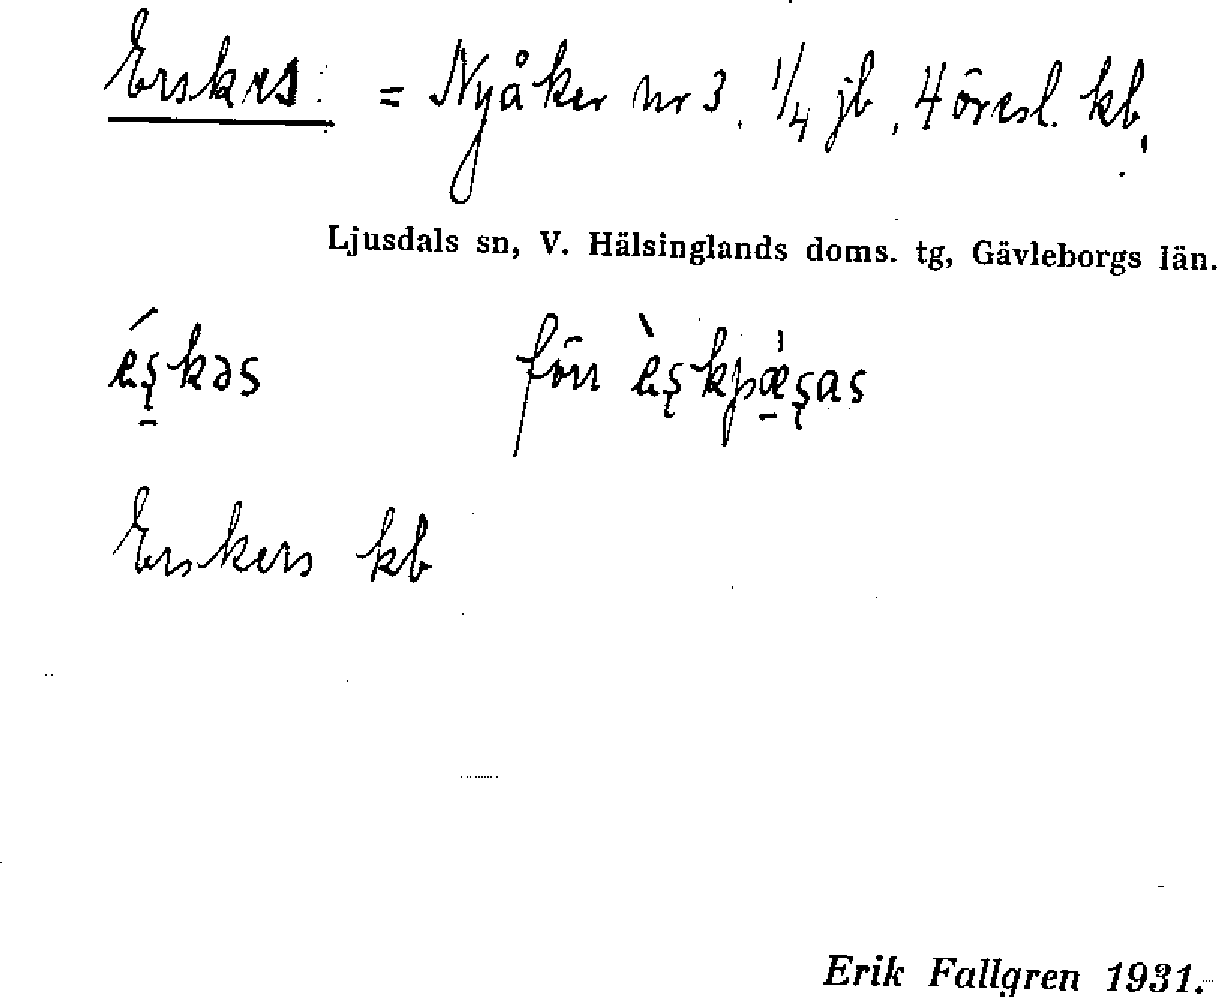 Erskes = Nyåker nr 3, 1/4 jb, 4 öresl. kb,
Ljusdals sn, V. Hälsinglands doms. tg, Gävleborgs län.
éʂkəs fön èʂkpǽʂas
Erskers kb
Erik Fallgren 1931.